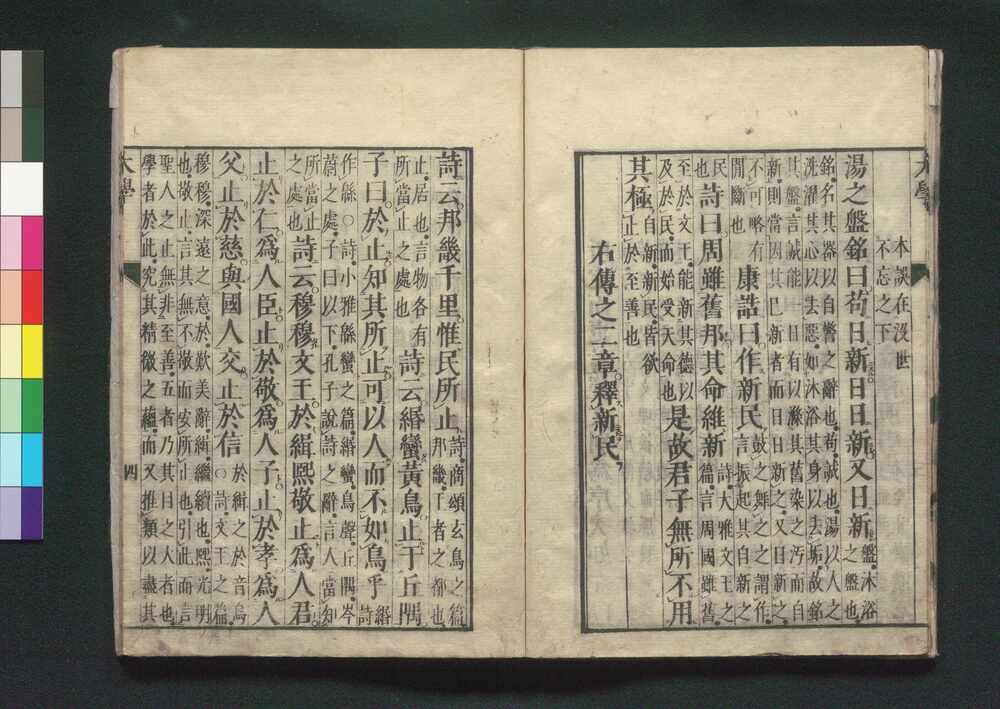 本誤在沒世
不忘之下
湯之盤銘曰苟日新日日新又日新盤沐浴
之盤也
銘名其器以自警之辭也苟誠也湯以人之
洗濯其心以去惡如沐浴其身以去垢故銘
其盤言誠能一日有以滌其舊染之汚而自
新則當因其已新者而日日新之又日新之
不可略有
間斷也康誥曰作新民鼓之舞之之謂作
言振起其自新之
民
也詩曰周雖舊邦其命維新詩大雅文王之
篇言周國雖舊
至於文王能新其德以
及於民而始受天命也是故君子無所不用
其極自新新民皆欲
止於至善也
右傳之二章釋新民
大學
詩云邦畿千里惟民所止詩商頌玄鳥之篇
邦畿王者之都也
止居也言物各有
所當止之處也詩云緡蠻黃鳥止于丘隅
子曰於止知其所止可以人而不如鳥乎詩
緡
作緜○詩小雅緜蠻之篇緡蠻鳥聲丘隅岑
蔚之處子曰以下孔子說詩之辭言人當知
所當止
之處也詩云穆穆文王於緝熙敬止爲人君
止於仁爲人臣止於敬爲人子止於孝爲人
父止於慈與國人交止於信於緝之於音烏
○詩文王之篇
穆穆深遠之意於歎美辭緝繼續也熙光明
也敬止言其無不敬而安所止也引此而言
聖人之止無非至善五者乃其目之大者也
學者於此究其精微之蘊而又推類以盡其
大學 四